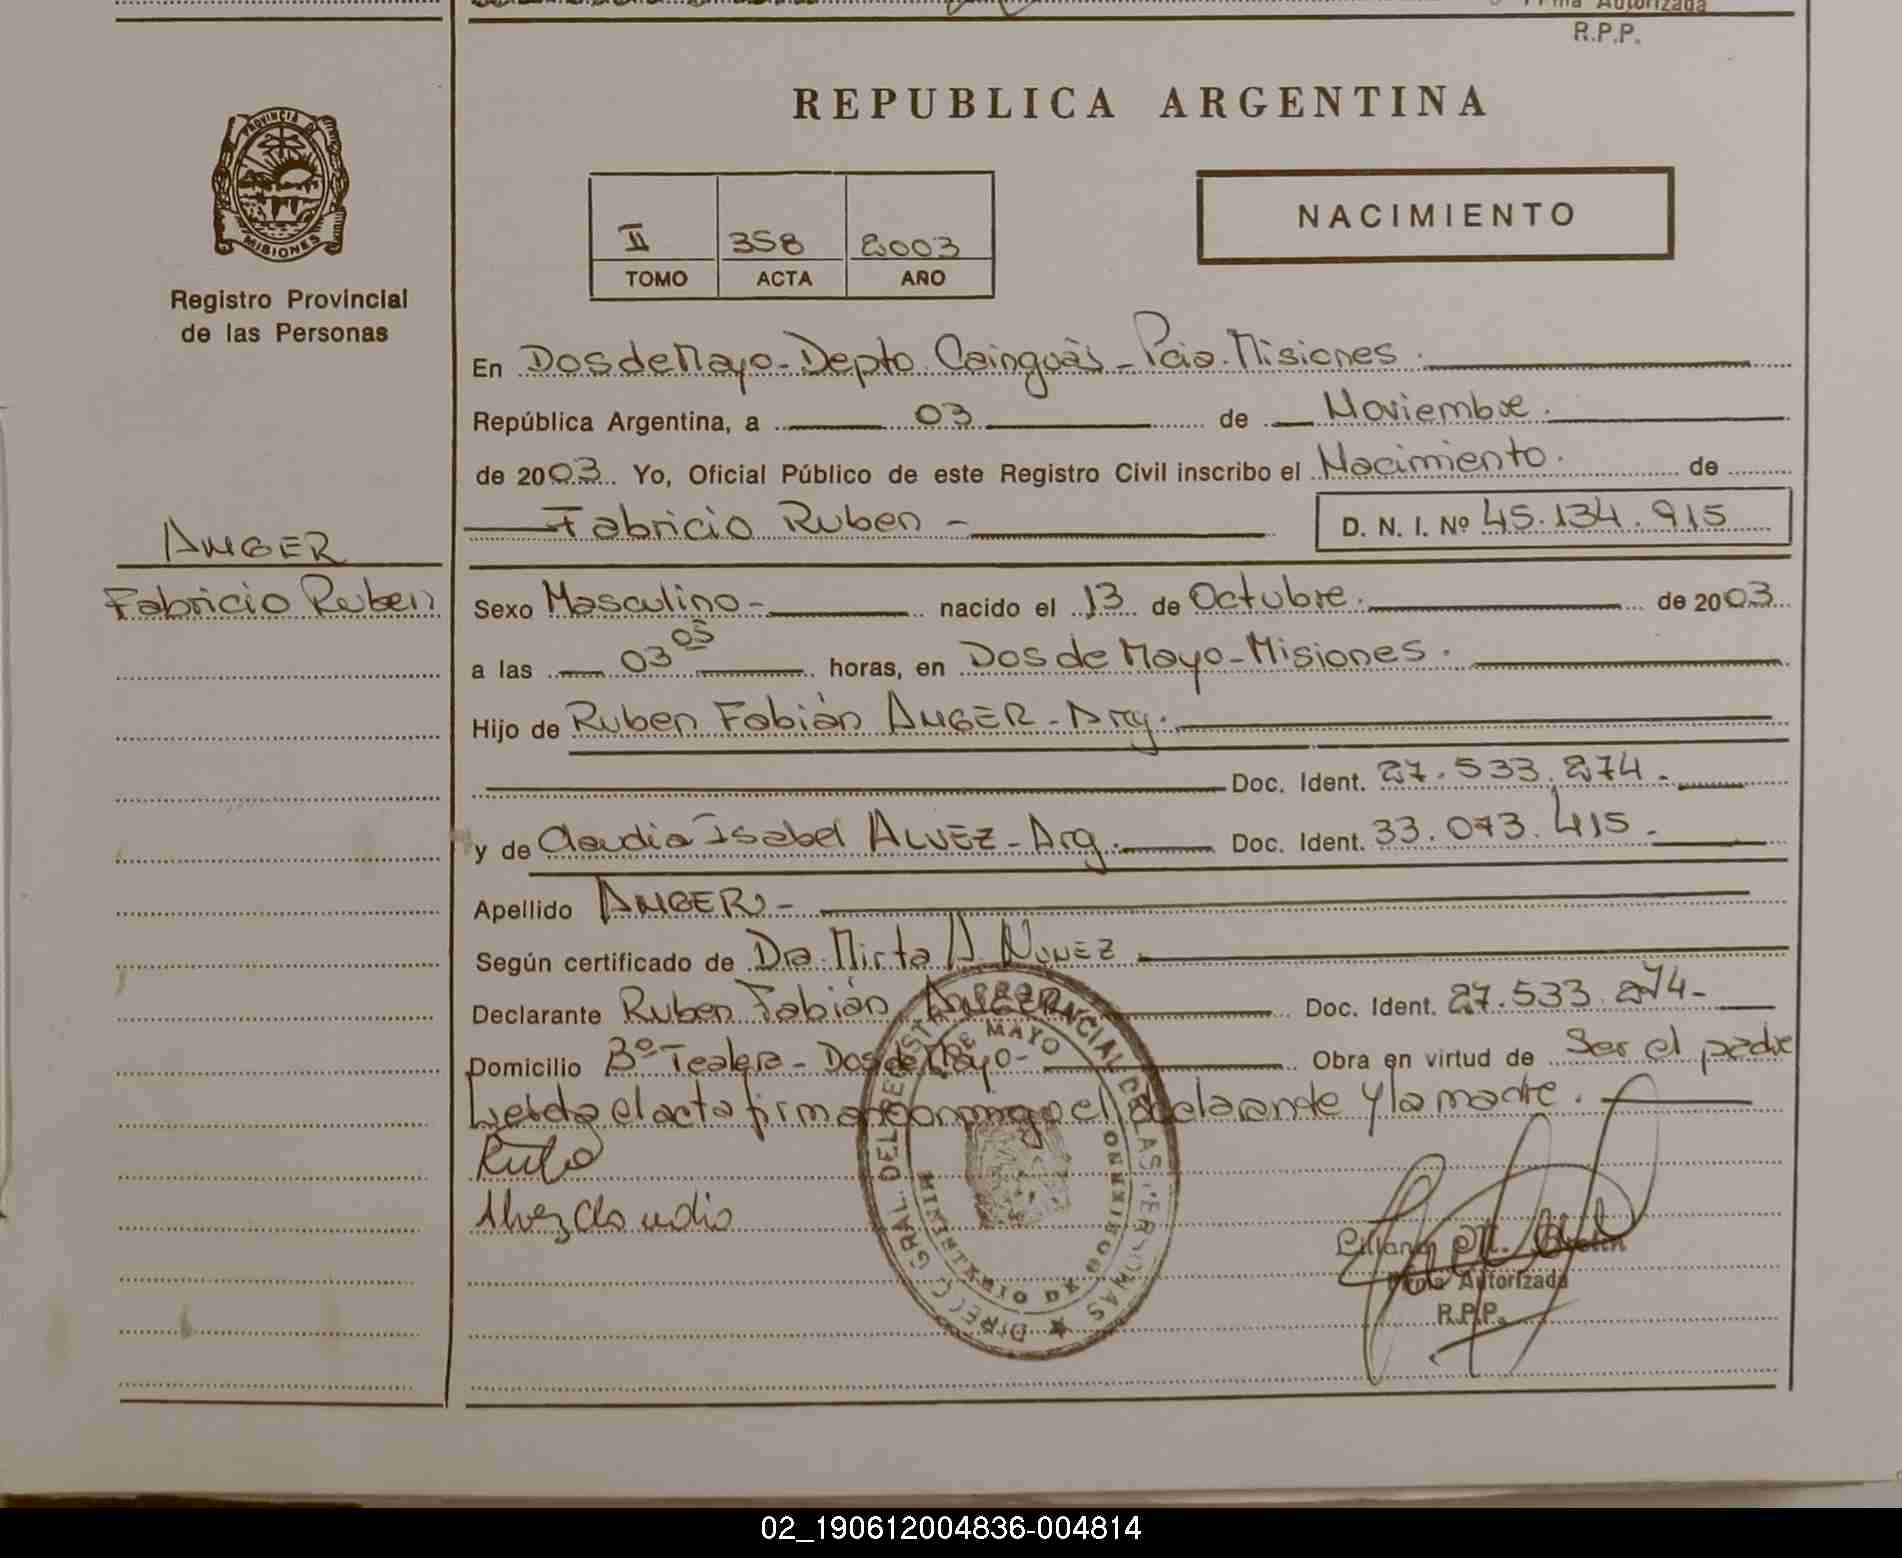 Firma Autorizada
R.P.P.
REPUBLICA ARGENTINA
PROVINCIA DE
MISIONES
Registro Provincial
de las Personas
II 358 2003
TOMO ACTA AÑO
NACIMIENTO
En Dos de Mayo - Depto. Cainguàs - Pcia. Misiones.
República Argentina, a 03 de Noviembre.
de 2003. Yo, Oficial Público de este Registro Civil inscribo el Nacimiento. de
Fabricio Ruben - D. N. I. Nº 45.134.915
ANGER
Fabricio Ruben
Sexo Masculino - nacido el 13 de Octubre. de 2003
a las 03 05 horas, en Dos de Mayo - Misiones.
Hijo de Ruben Fabián ANGER - Arg.
Doc. Ident. 27.533.274.-
y de Claudia Isabel ALVEZ - Arg. Doc. Ident. 33.073.415.-
Apellido ANGER -
Según certificado de Dra. Mirta A. NUÑEZ
Declarante Ruben Fabián ANGER Doc. Ident. 27.533.274-
Domicilio Bº Tealera - Dos de Mayo - Obra en virtud de Ser el padre
Leida el acta firman conmigo el declarante y la madre.
Alvez Claudia
DIRECC. GRAL. DEL REGISTRO PROVINCIAL DE LAS PERSONAS
2 DE MAYO
MINISTERIO DE GOBIERNO
Liliana M.
Firma Autorizada
R.P.P.
02_190612004836-004814